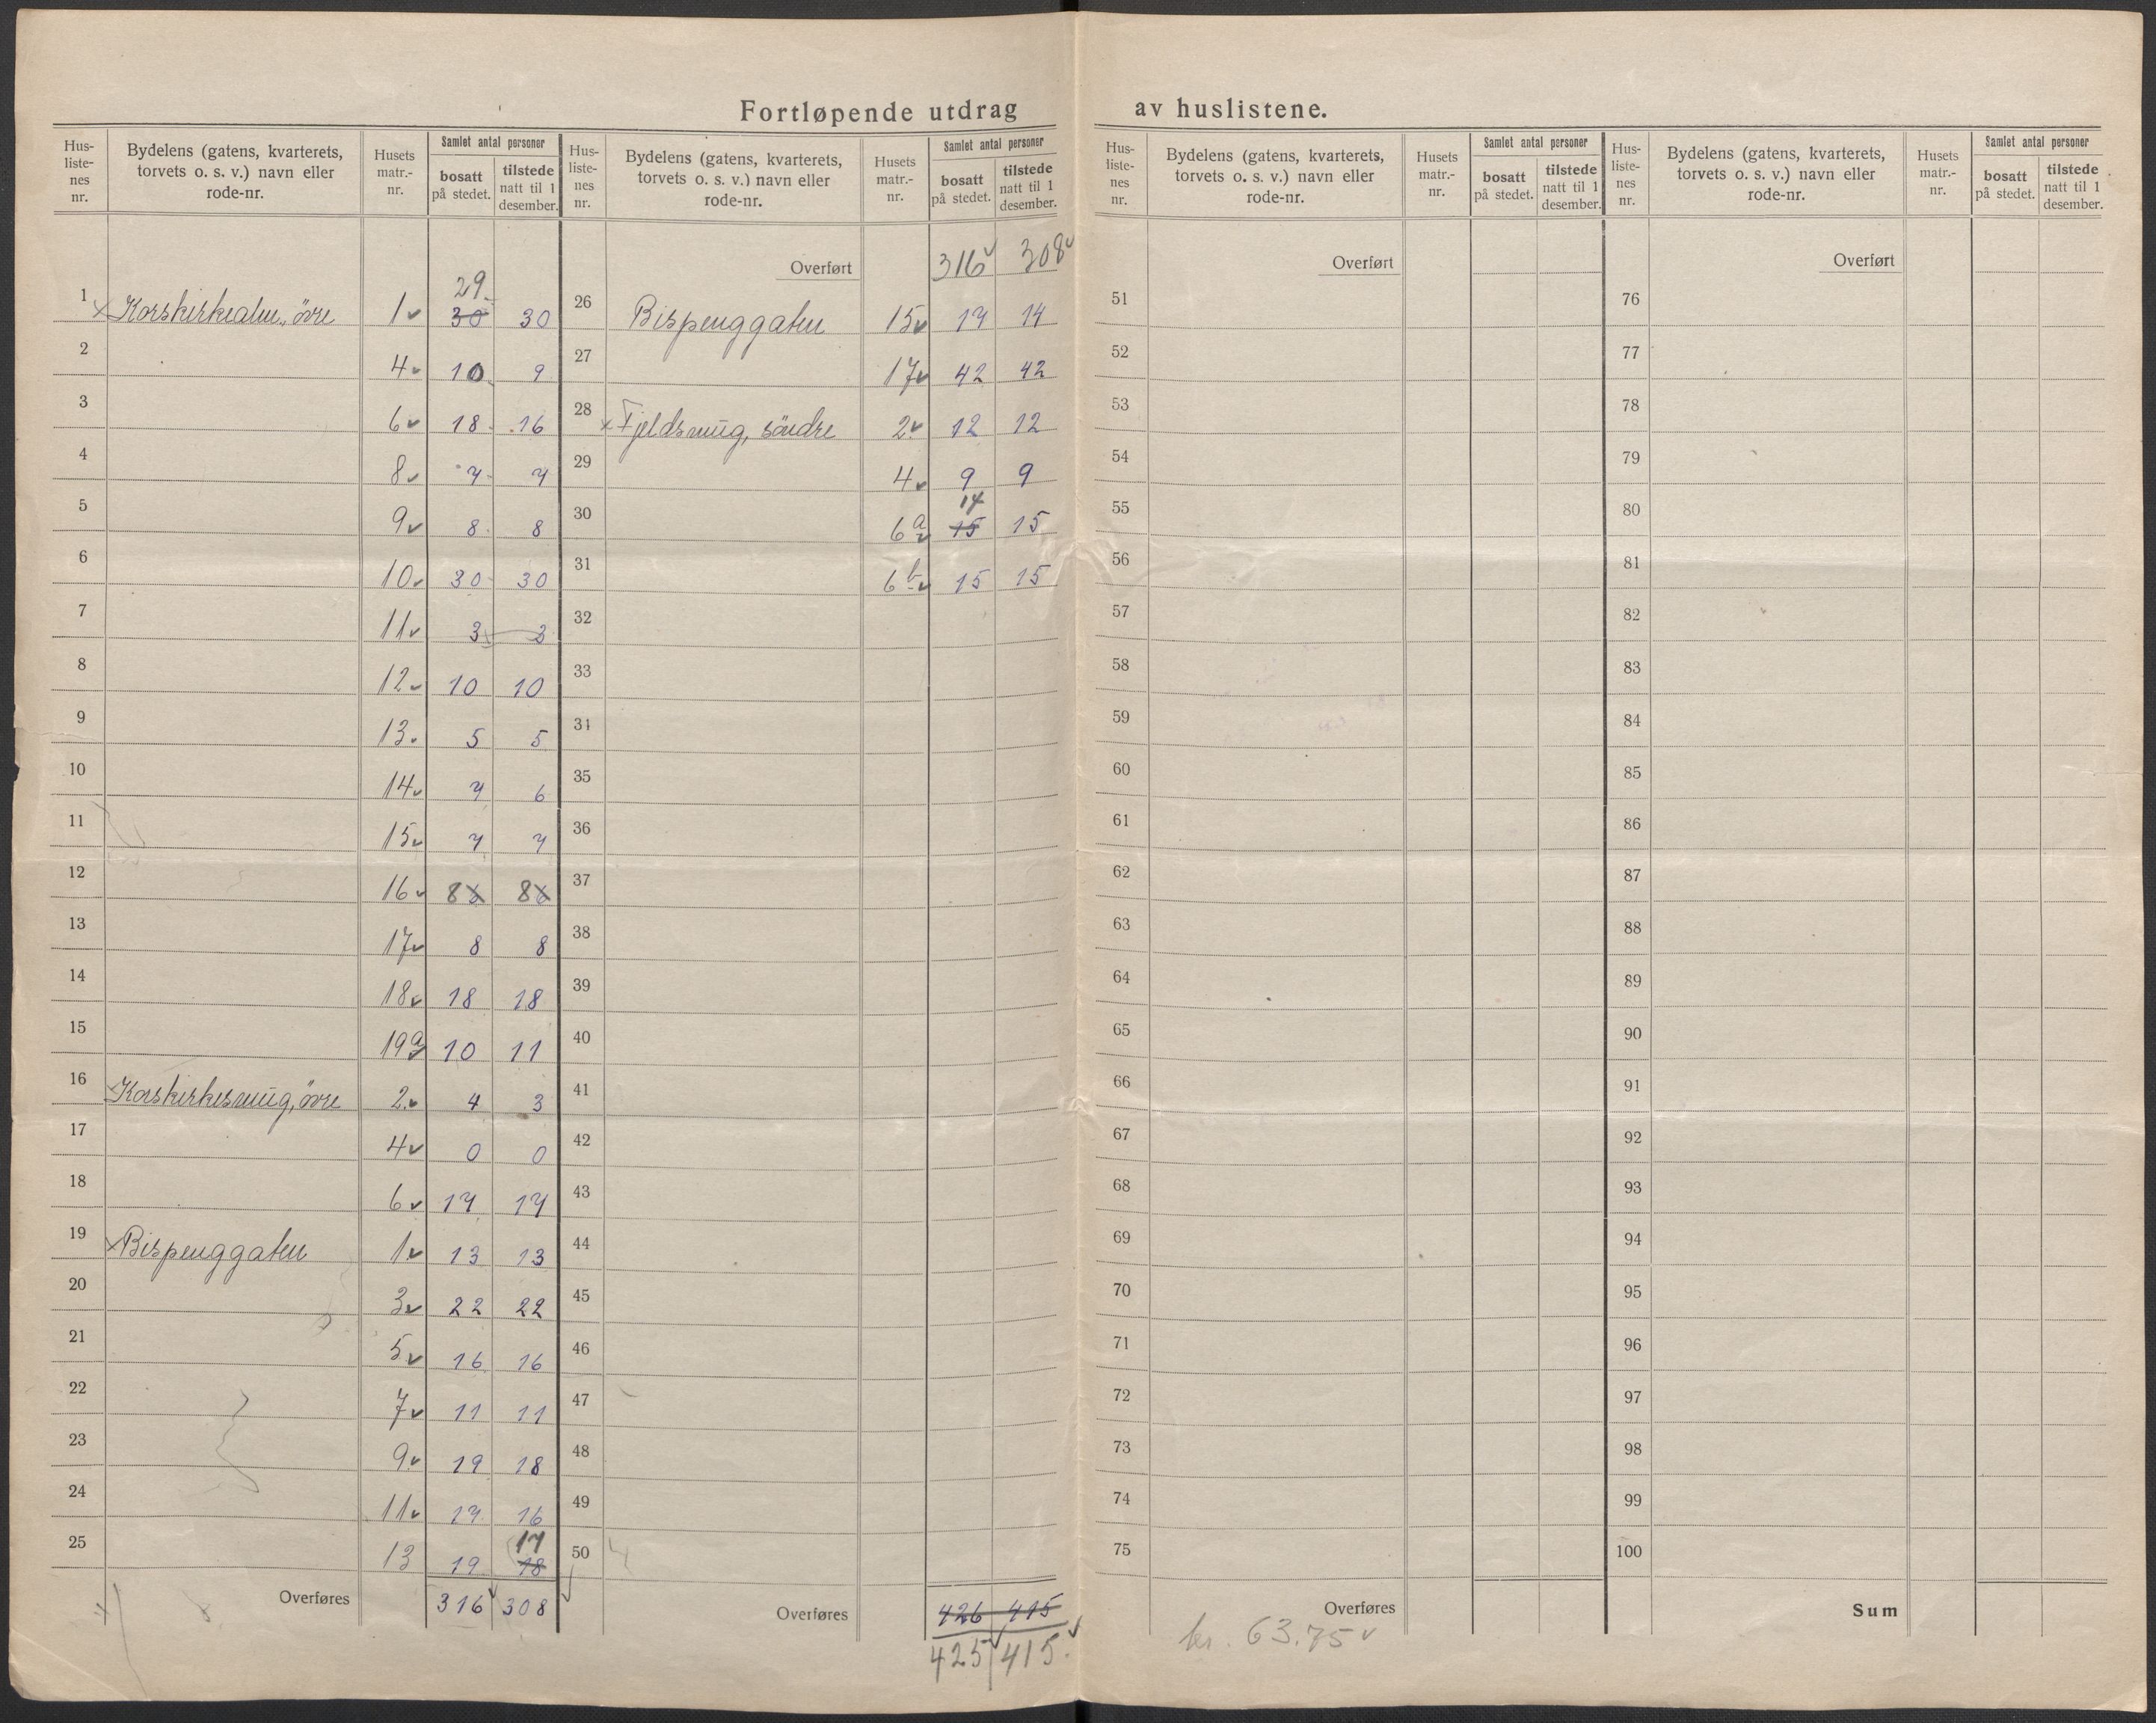 Fortløpende utdrag av huslistene.
Hus-
liste-
nes
nr.
Bydelens (gatens, kvarterets,
torvets o. s. v.) navn eller
rode-nr.
Husets
matr.-
nr.
Samlet antal personer
bosatt
på stedet.
tilstede
natt til 1
desember.
29
1 Korskirkealm., övre 1 30 30
2 4 10 9
3 6 18 16
4 8 7 7
5 9 8 8
6 10 30 30
7 11 3 2
8 12 10 10
9 13 5 5
10 14 7 6
11 15 7 7
12 16 8 8
13 17 8 8
14 18 18 18
15 19a 10 11
16 Korskirkesmug, övre 2 4 3
17 4 0 0
18 6 17 17
19 Bispenggaten 1 13 13
20 3 22 22
21 5 16 16
22 7 11 11
23 9 19 18
24 11 17 16
17
25 13 19 18
Overføres 316 308
Hus-
liste-
nes
nr.
Bydelens (gatens, kvarterets,
torvets o. s. v.) navn eller
rode-nr.
Husets
matr.-
nr.
Samlet antal personer
bosatt
på stedet.
tilstede
natt til 1
desember.
Overført 316 308
26 Bispenggaten 15 17 14
27 17 42 42
28 Fjeldsmug, söndre 2 12 12
29 4 9 9
14
30 6a 15 15
31 6b 15 15
32
33
34
35
36
37
38
39
40
41
42
43
44
45
46
47
48
49
50
Overføres 426 415
425 415
Hus-
liste-
nes
nr.
Bydelens (gatens, kvarterets,
torvets o. s. v.) navn eller
rode-nr.
Husets
matr.-
nr.
Samlet antal personer
bosatt
på stedet.
tilstede
natt til 1
desember.
Overført
51
52
53
54
55
56
57
58
59
60
61
62
63
64
65
66
67
68
69
70
71
72
73
74
75
Overføres
kr. 63.75
Hus-
liste-
nes
nr.
Bydelens (gatens, kvarterets,
torvets o. s. v.) navn eller
rode-nr.
Husets
matr.-
nr.
Samlet antal personer
bosatt
på stedet.
tilstede
natt til 1
desember.
Overført
76
77
78
79
80
81
82
83
84
85
86
87
88
89
90
91
92
93
94
95
96
97
98
99
100
Sum